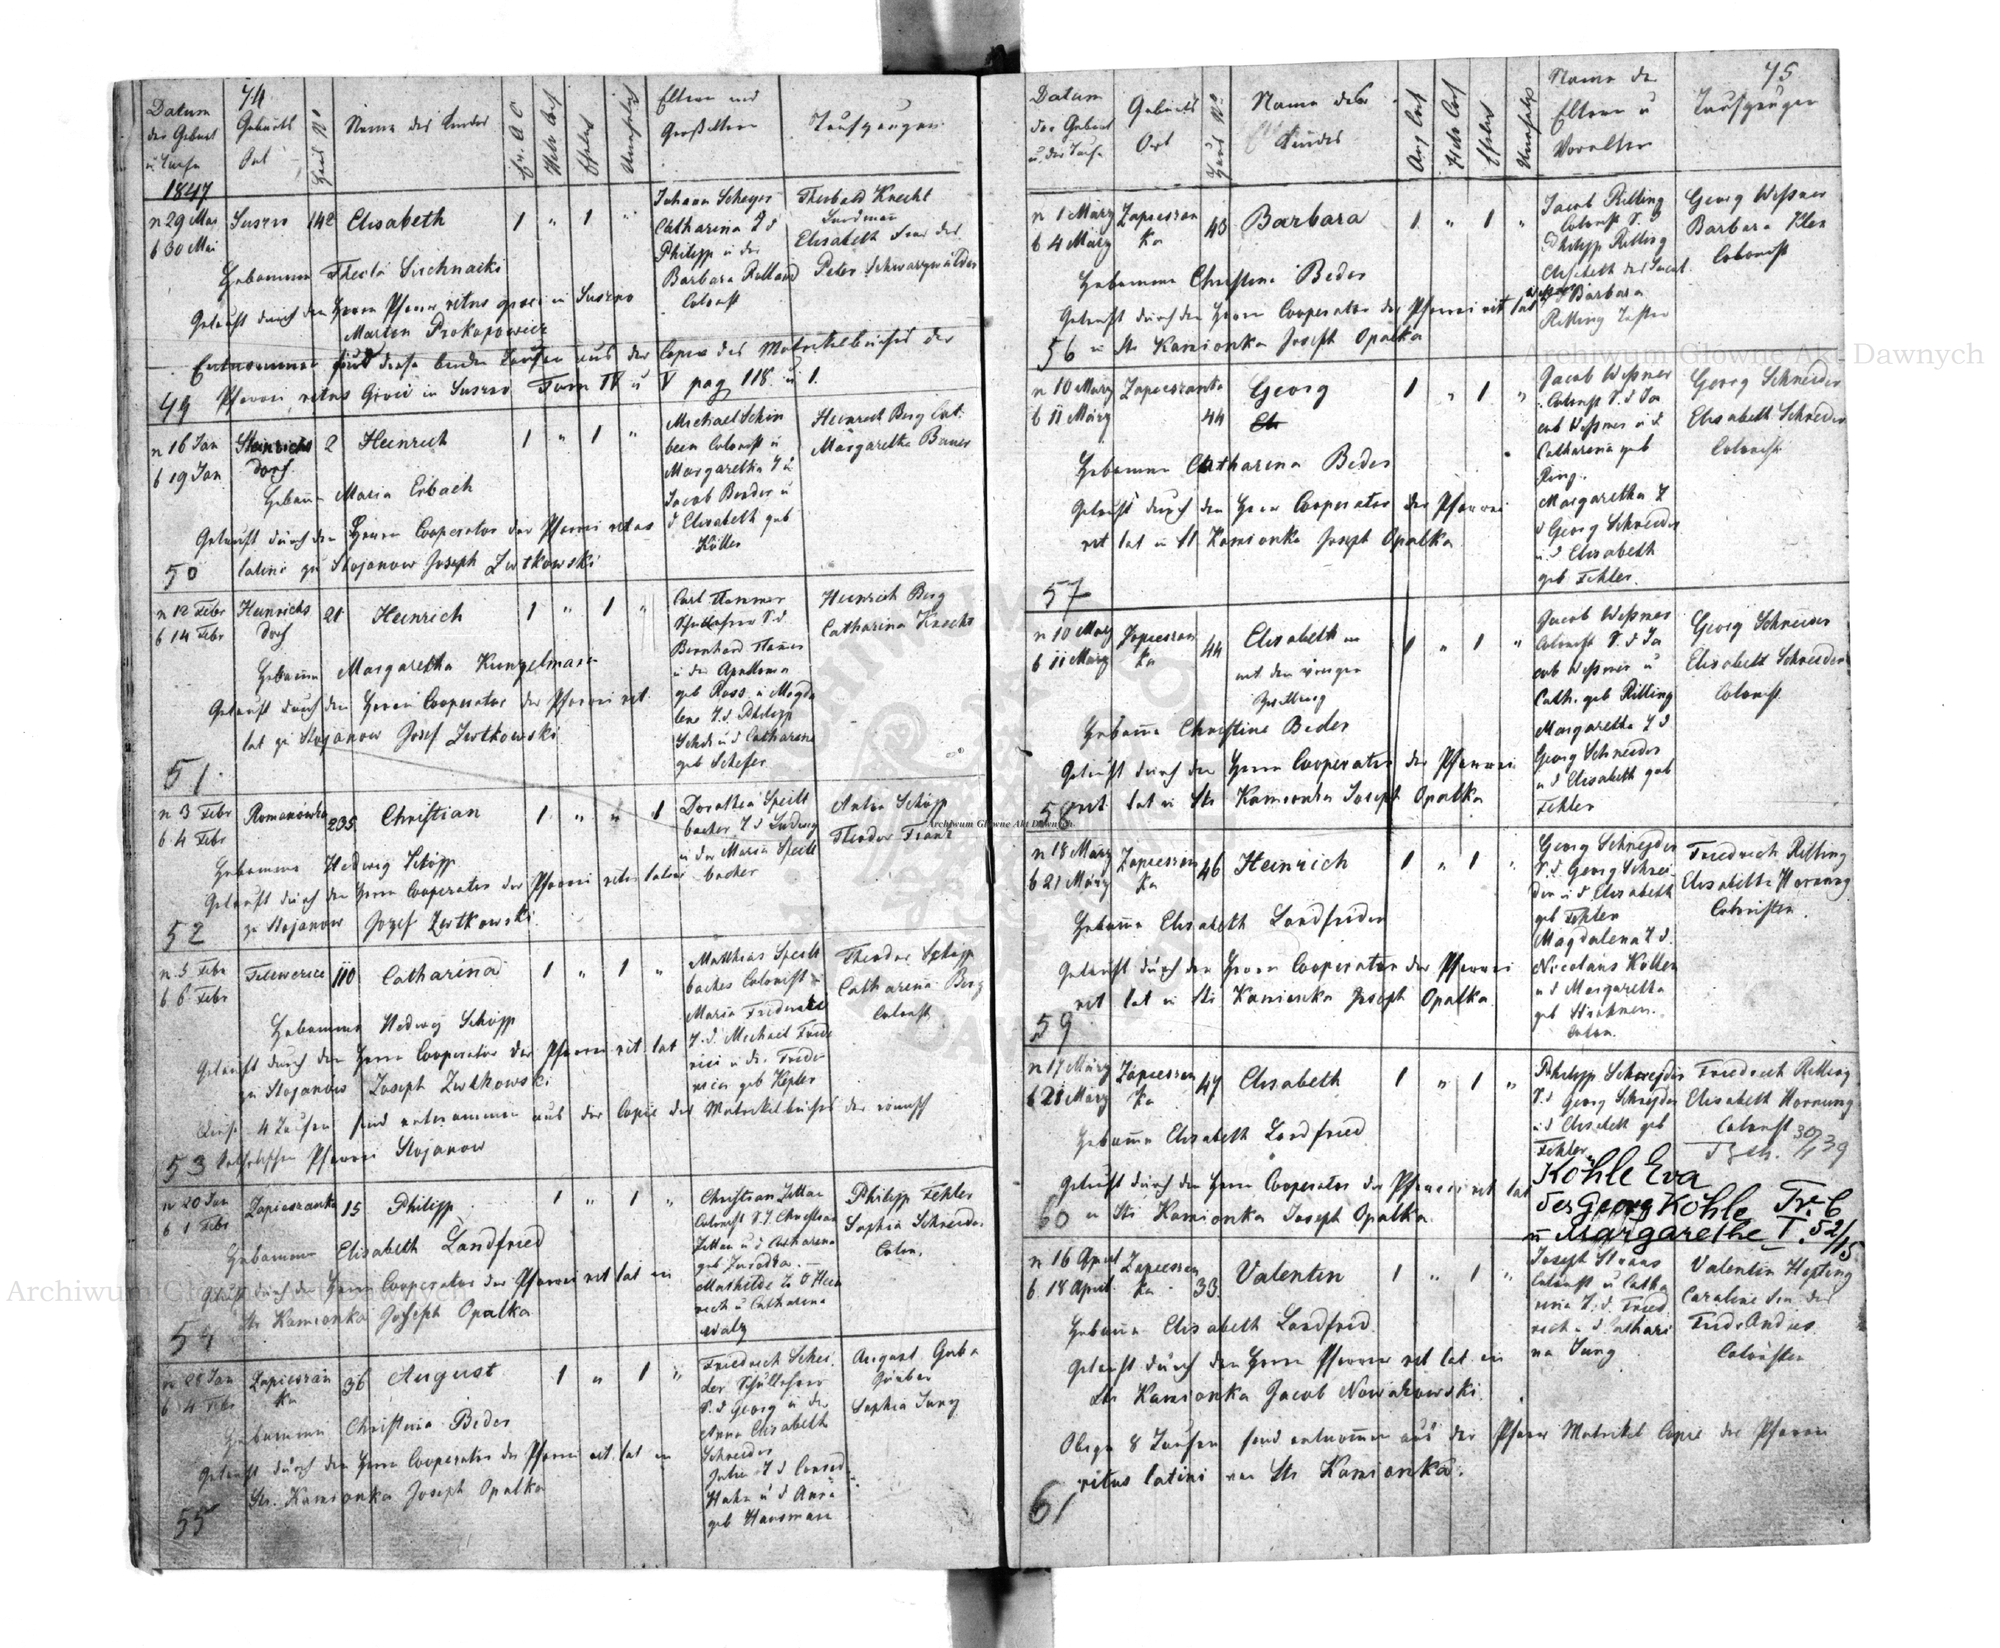 74
Datum
der Geburt
u Taufe
Geburts
Ort
Haus No
Name des Kindes
Ev. A C
Helv Conf
Ehelich
Unehelich
Eltern und
Großeltern
Taufzeugen
1847
n 29 Mai
b 30 Mai
Suszno
142
Elisabeth
1 " 1 "
Johann Scheyer
Catharina T d
Philipp u der
Barbara Rolland
Colonist
Theobald Knecht
Elisabeth Frau des
Peter Schwarzwälder
Hebamme Thecla
Getauft durch den Herrn Pfarrer ritus graeci in Suszno
Martin Prokopowicz
Entnommen sind diese beiden Taufen aus der Copie des Matrikelbuches der
49 Pfarrei ritus Graeci in Suszno Tom IV u V pag 118 u 1.
n 16 Jan
b 19 Jan
Heinrichs
dorf
2
Heinrich
1 " 1 "
Michael Schön
born Colonist u
Margaretha T d
Jacob Bender u
d Elisabeth geb
Köller
Heinrich Berg Col.
Margarethe Bauer
Hebame Maria Erbach
Getauft durch den Herrn Cooperator der Pfarrei ritus
50 latini zu Stojanow Joseph Zwtkowski
n 12 Febr
b 14 Febr
Heinrichs
dorf
21
Heinrich
1 " 1 "
Carl Hammer
Schullehrer S. d.
Bernhard Hamer
u der Apollonia
geb Ross u Magda
lena T. d. Philipp
Scheer u d Catharina
geb Schefer
Heinrich Berg
Catharina Knecht
Hebame Margaretha Kunzelmann
Getauft durch den Herrn Cooperator der Pfarrei rit.
lat zu Stojanow Josef Zwtkowski
51
n 3 Febr
b 4 Febr
Romanówka
235
Christian
1 " " 1
Dorothea Speit
bacher T d Ludwig
u der Maria Speit
bacher
Anton Schöpp
Theodor Franz
Hebamme Hedwig Schöpp
Getauft durch den Herrn Cooperator der Pfarrei ritus latini
52 zu Stojanow Jozef Zwtkowski
n 5 Febr
b 6 Febr
110
Catharina
1 " 1 "
Matthias Speit
bacher Colonist u
Maria Friderici
T. d. Michael Fride
rici u dr. Fride
ricia geb Kepler
Theodor Schöpp
Catharina Berg
Colonist
Hebamme Hedwig Schöpp
Getauft durch den Herrn Cooperator der Pfarrei rit lat
zu Stojanow Joseph Zwtkowski
Diese 4 Taufen sind entnommen aus der Copie des Matrikelbuches der römisch
53 katholischen Pfarrei Stojanow
n 20 Jan
b 1 Febr
Zapieszanka
15
Philipp
1 " 1 "
Christian Zittau
Colonist S. d. Christian
Zittau u d Catharina
Mathilde T. d Hein
rich u Catharina
Walz
Philipp Fehler
Sophia Schneider
Colon.
Hebamme Elisabeth Landfried
Getauft durch den Herrn Cooperator der Pfarrei rit lat in
54 Str. Kamionka Joseph Opalka
n 28 Jan
b 4 Febr
Zapieszan
ka
36
August
1 " 1 "
Friedrich Schei
der Schullehrer
S. d Georg u der
Anna Elisabeth
Schneider
Julia T d Conrad
Hahn u d Anna
geb Hausmann
August Guba
Sophia Jung
Hebamme Christina Beder
Getauft durch den Herrn Cooperator der Pfarrei rit. lat in
Str. Kamionka Joseph Opalka
55
75
Datum
der Geburt
u der Taufe
Geburts
Ort
Haus No
Name des
Kindes
Aug Conf
Helv Conf
Ehelich
Unehelich
Name der
Eltern u
Voreltern
Taufzeugen
n 1 März
b 4 März
Zapieszan
ka
43
Barbara
1 " 1 "
Jacob Ritting
Colonist S. d
Philipp Ritting
Elisabeth des Jacob
Barbara
Ritting Tochter
Georg Weßner
Barbara Klee
Colonist
Hebamme Christina Beder
Getauft durch den Herrn Cooperator der Pfarrei rit lat
56 in Str Kamionka Joseph Opalka
n 10 März
b 11 März
Zapieszanka
44
Georg
1 " 1 "
Jacob Weßner
Colonist S. d Ja
cob Weßner u d
Catharina geb
Ring.
Margaretha T
d Georg Schneider
u d Elisabeth
geb Fehler.
Georg Schneider
Elisabeth Schneider
Colonist
Hebamme Catharina Beder
Getauft durch den Herrn Cooperator der Pfarrei
rit lat in St. Kamionka Joseph Opalka
57
n 10 März
b 11 März
Zapieszan
ka
44
Elisabeth
mit dem vorigen
Zwilling
1 " 1 "
Jacob Weßner
Colonist S. d Ja
cob Weßner u
Cath. geb Ritting
Margaretha T d
Georg Schneider
u d Elisabeth geb
Fehler
Georg Schneider
Elisabeth Schneider
Colonist
Hebame Christine Beder
Getauft durch den Herrn Cooperator der Pfarrei
58 rit lat in Str Kamionka Joseph Opalka
n 18 März
b 21 März
Zapieszan
ka
46
Heinrich
1 " 1 "
Georg Schneider
S. d. Georg Schnei
der u d Elisabeth
geb Fehler
Magdalena T d.
Nicolaus Köller
u d Margaretha
Colon.
Friedrich Ritting
Elisabeth Hornung
Colonisten.
Hebame Elisabeth Landfrieder
Getauft durch den Herrn Cooperator der Pfarrei
rit lat in Str Kamionka Joseph Opalka
59
n 17 März
b 21 März
Zapieszan
ka
47
Elisabeth
1 " 1 "
Philipp Schneider
S. d Georg Schneider
u d Elisabeth geb
Fehler
Friedrich Ritting
Elisabeth Hornung
Colonist
30/39
Hebame Elisabeth Landfried
Köhle Eva
des Georg Köhle Tr. 6
u Margarethe T. 52/15
Getauft durch den Herrn Cooperator der Pfarrei rit lat
60 in Str Kamionka Joseph Opalka.
n 16 April
b 18 April
Zapieszan
ka
33
Valentin
1 " 1 "
Joseph Straus
Colonist u Catha
rina T. d. Fried
rich u d Cathari
na Jung
Valentin Hepting
Caroline Frau des
Fridr Andres
Colonisten
Hebame Elisabeth Landfried
Getauft durch den Herrn Pfarrer rit lat in
Str Kamionka Jacob Nowakowski
Obige 8 Taufen sind entnommen aus der Pfarr Matrikel Copie der Pfarrei
ritus latini von Str Kamionka.
61
Archiwum Główne Akt Dawnych
Archiwum Główne Akt Dawnych
Archiwum Główne Akt Dawnych